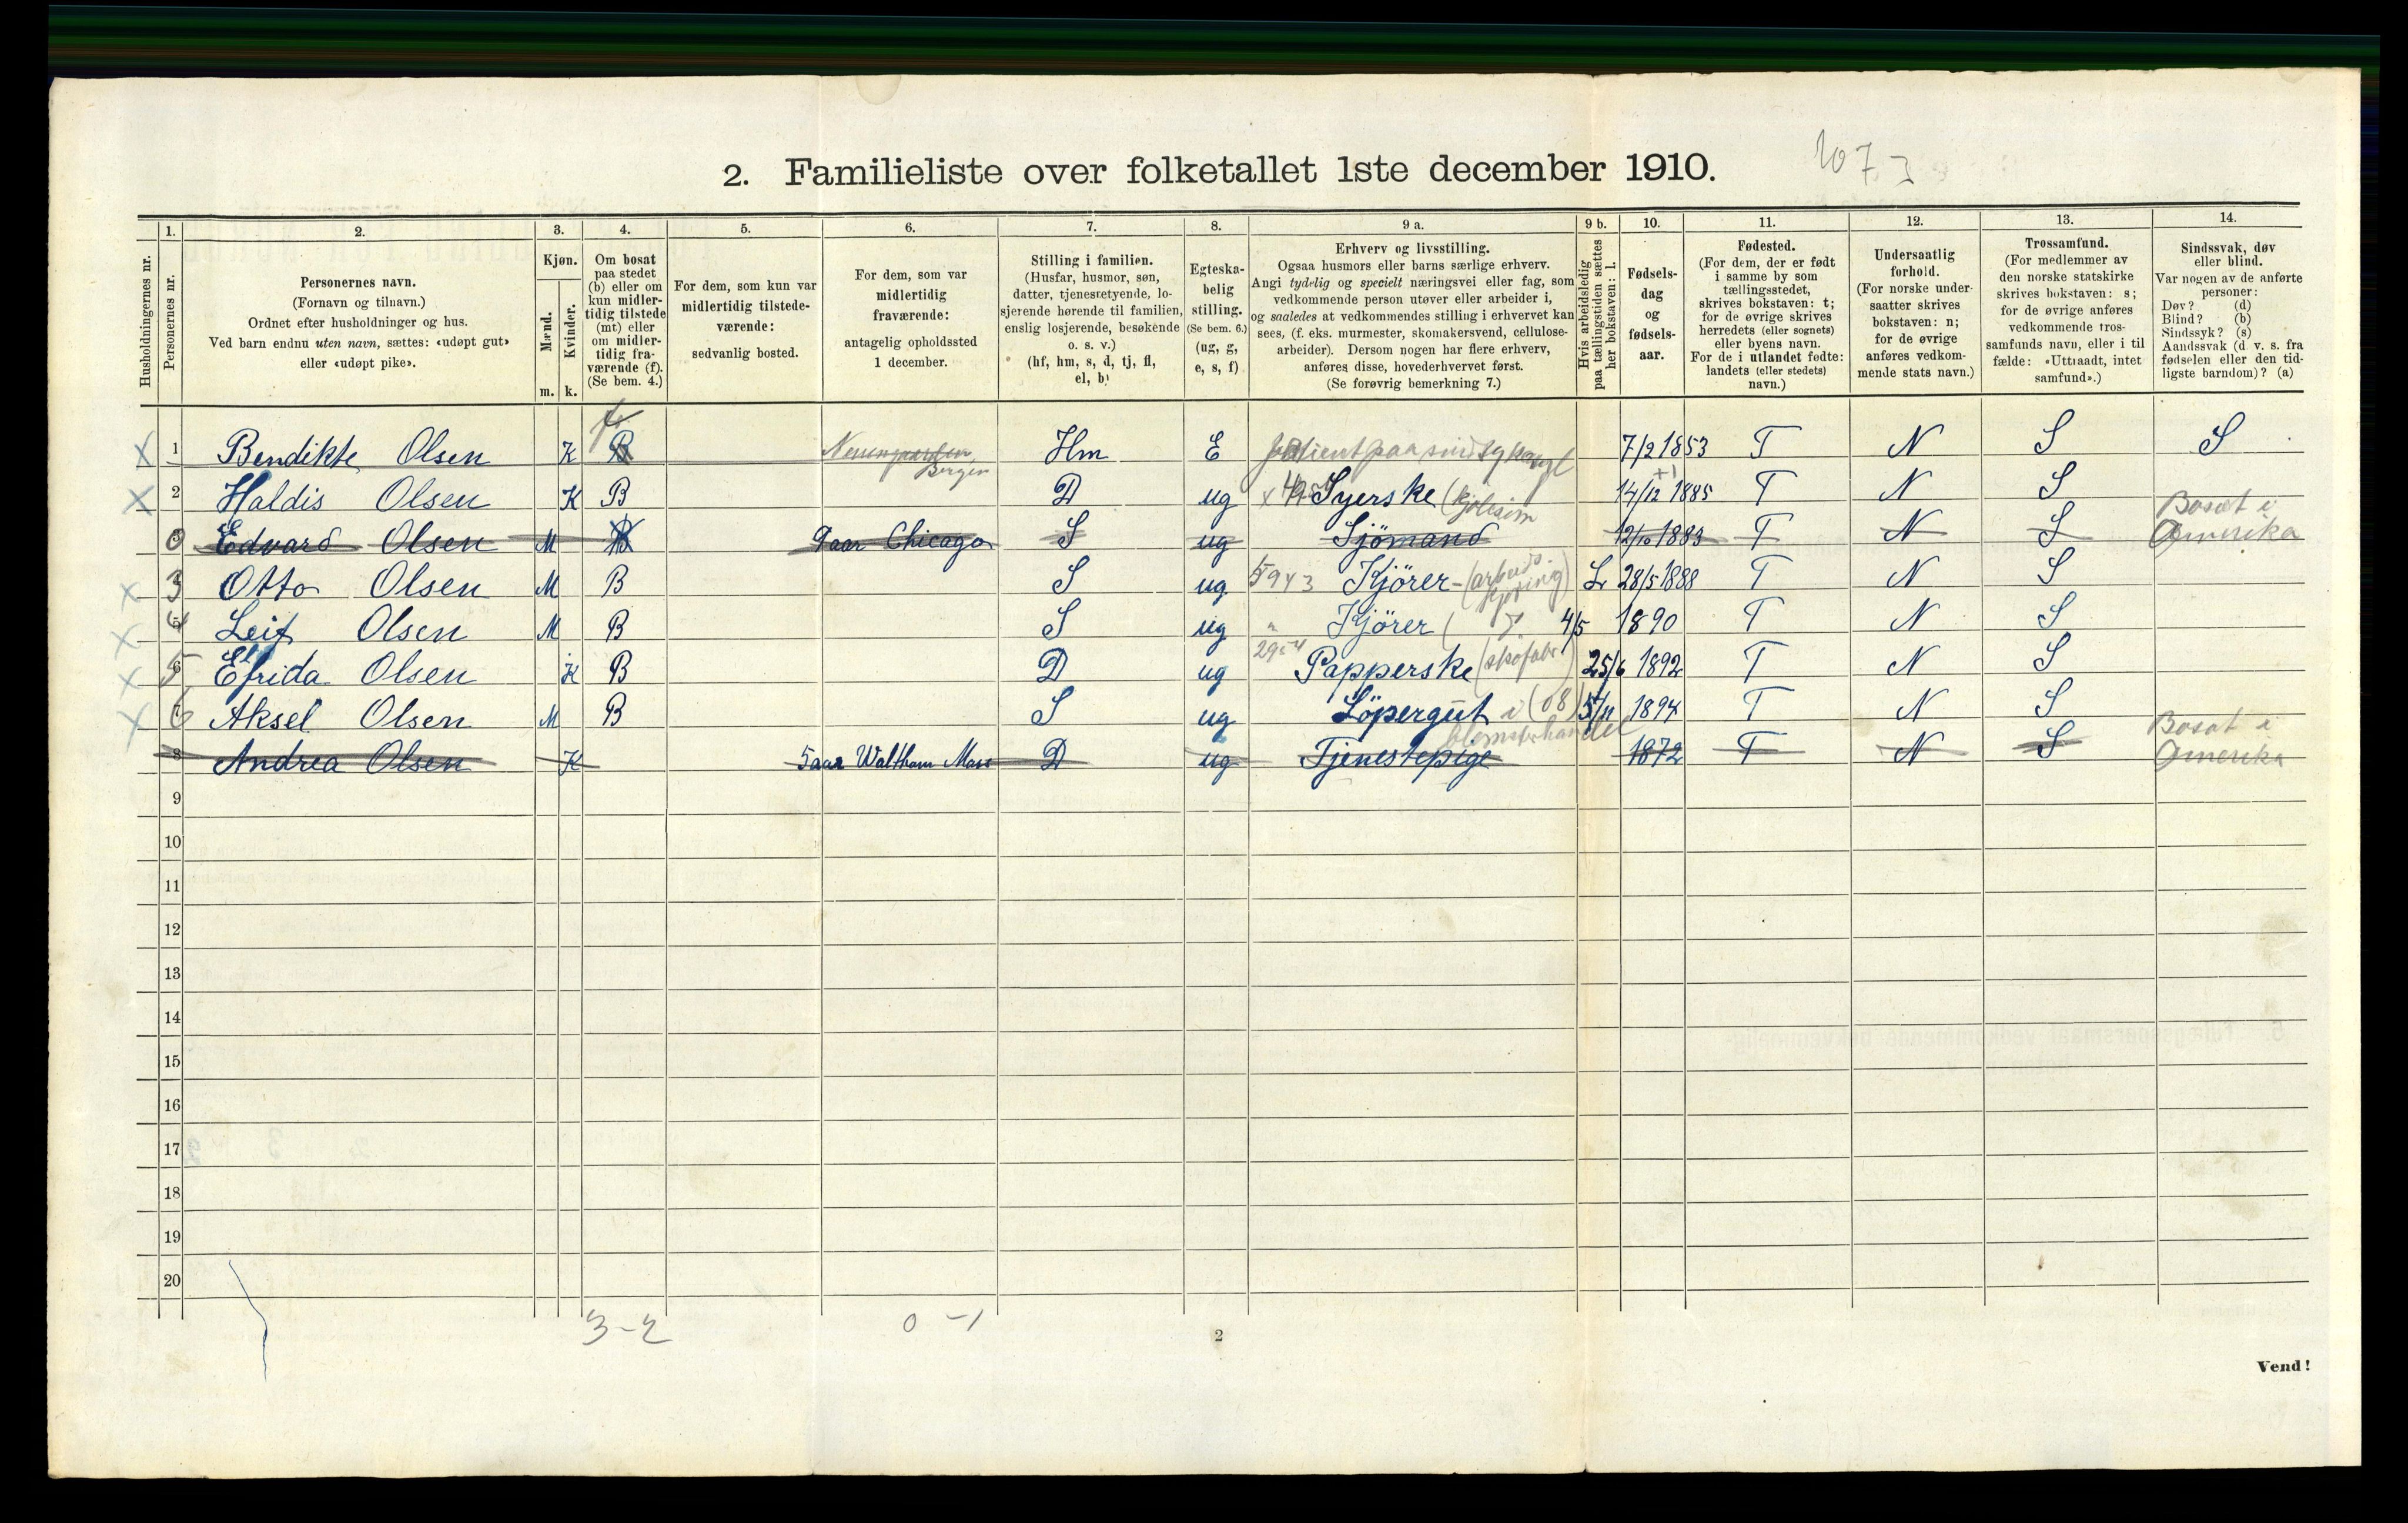 2. Familieliste over folketallet 1ste december 1910.
1. 2. 3. 4. 5. 6. 7. 8. 9 a. 9 b. 10. 11. 12. 13. 14.
Husholdningernes nr.
Personernes nr.
Personernes navn.
(Fornavn og tilnavn.)
Ordnet efter husholdninger og hus.
Ved barn endnu uten navn, sættes: «udøpt gut»
eller «udøpt pike».
Kjøn.
Mænd.
m.
Kvinder.
k.
Om bosat
paa stedet
(b) eller om
kun midler-
tidig tilstede
(mt) eller
om midler-
tidig fra-
værende (f).
(Se bem. 4.)
For dem, som kun var
midlertidig tilstede-
værende:
sedvanlig bosted.
For dem, som var
midlertidig
fraværende:
antagelig opholdssted
1 december.
Stilling i familien.
(Husfar, husmor, søn,
datter, tjenestetyende, lo-
sjerende hørende til familien,
enslig losjerende, besøkende
o. s. v.)
(hf, hm, s, d, tj, fl,
el, b)
Egteska-
belig
stilling.
(Se bem. 6.)
(ug, g,
e, s, f)
Erhverv og livsstilling.
Ogsaa husmors eller barns særlige erhverv.
Angi tydelig og specielt næringsvei eller fag, som
vedkommende person utøver eller arbeider i,
og saaledes at vedkommendes stilling i erhvervet kan
sees, (f. eks. murmester, skomakersvend, cellulose-
arbeider). Dersom nogen har flere erhverv,
anføres disse, hovederhvervet først.
(Se forøvrig bemerkning 7.)
Hvis arbeidsledig
paa tællingstiden sættes
her bokstaven: l.
Fødsels-
dag
og
fødsels-
aar.
Fødested.
(For dem, der er født
i samme by som
tællingsstedet,
skrives bokstaven: t;
for de øvrige skrives
herredets (eller sognets)
eller byens navn.
For de i utlandet fødte:
landets (eller stedets)
navn.)
Undersaatlig
forhold.
(For norske under-
saatter skrives
bokstaven: n;
for de øvrige
anføres vedkom-
mende stats navn.)
Trossamfund.
(For medlemmer av
den norske statskirke
skrives bokstaven: s;
for de øvrige anføres
vedkommende tros-
samfunds navn, eller i til-
fælde: «Uttraadt, intet
samfund».)
Sindssvak, døv
eller blind.
Var nogen av de anførte
personer:
Døv? (d)
Blind? (b)
Sindssyk? (s)
Aandssvak (d. v. s. fra
fødselen eller den tid-
ligste barndom)? (a)
X 1 Bendikte Olsen K B Bergen Hm E 7/2 1853 T N S S
X 2 Haldis Olsen K B D ug Syerske 14/12 1885 T N S
Edvard Olsen M B 9 aar Chicago S ug Sjömand 12/10 1883 T N S Bosat i Amerika
X 3 Otto Olsen M B S ug 5943 Kjörer (arbeids kjöring) L 28/5 1888 T N S
X 4 Leif Olsen M B S ug " Kjörer 4/5 1890 T N S
X 5 Efrida Olsen K B D ug Papperske (skofabr.) 25/6 1892 T N S
X 6 Aksel Olsen M B S ug Löpergut i (08) blomsterhandel 5/11 1894 T N S
8 Andrea Olsen K 5 aar Waltham Mass D ug Tjenestepige 1872 T N S Bosat i Amerika
9
10
11
12
13
14
15
16
17
18
19
20
3-2 0-1
2
Vend!